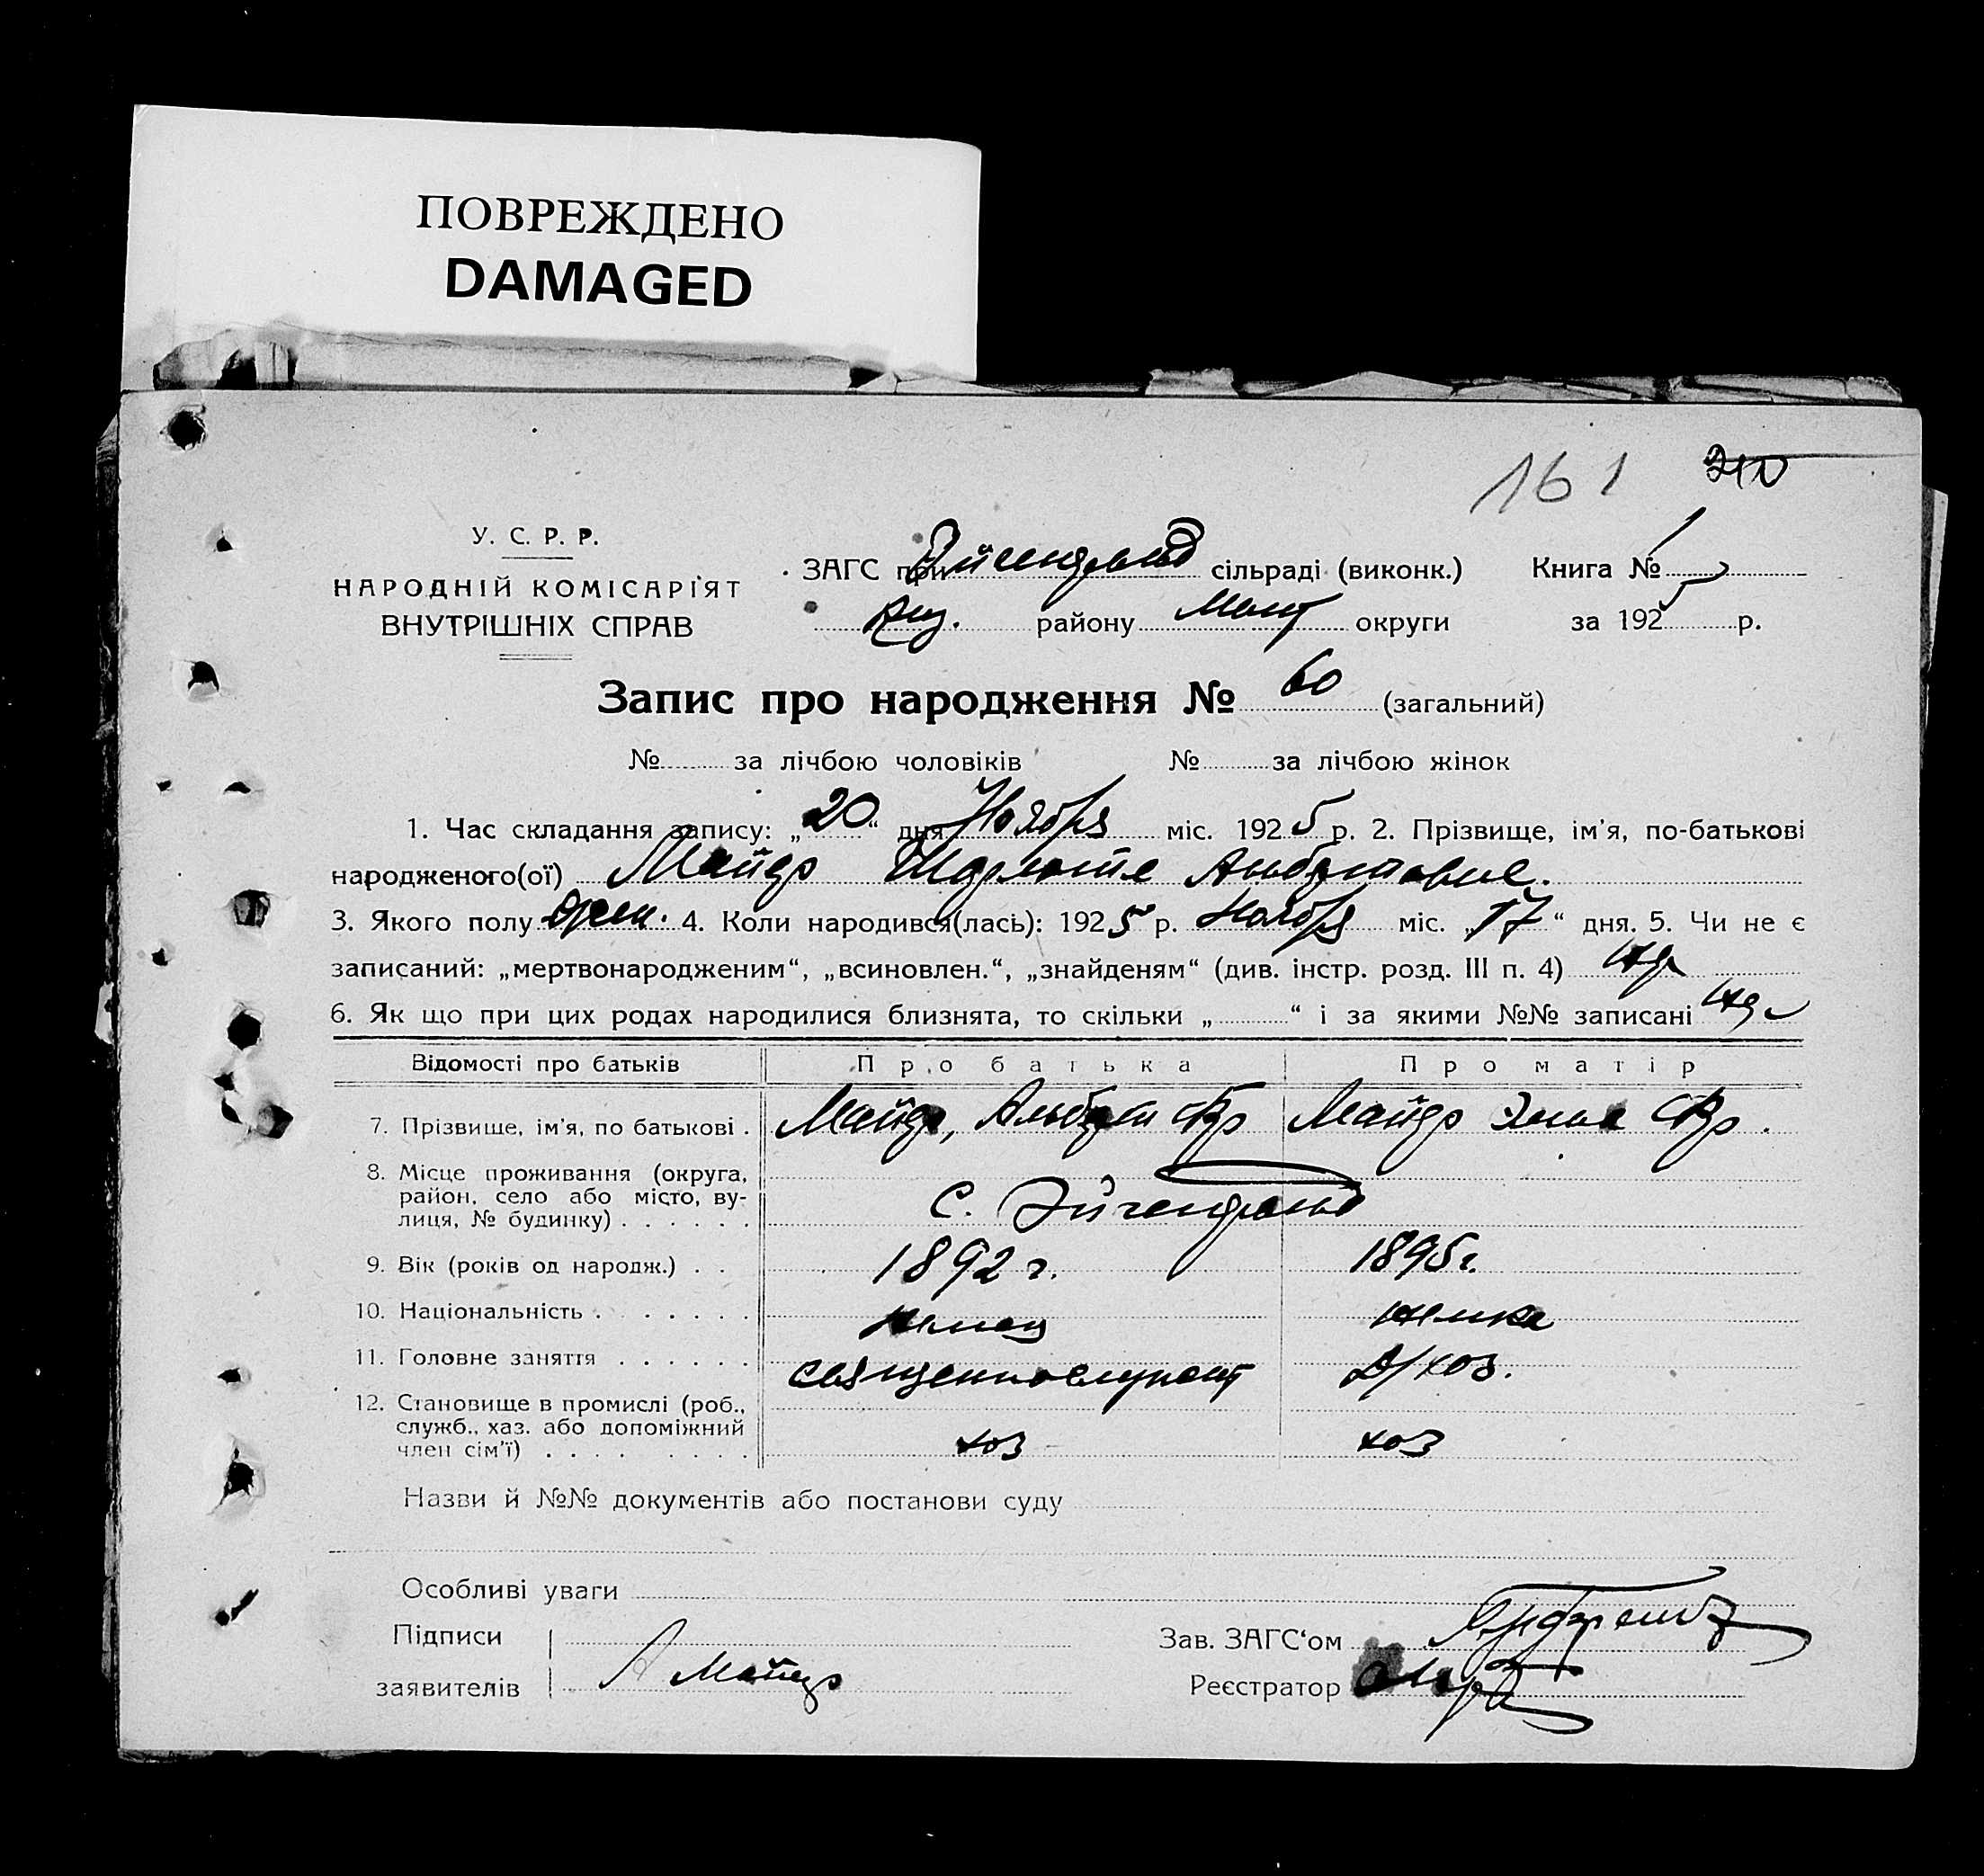 ПОВРЕЖДЕНО
DAMAGED
161
У. С. Р. Р.
НАРОДНІЙ КОМІСАРІЯТ
ВНУТРІШНІХ СПРАВ
ЗАГС при сільраді (виконк.) Книга № 1
району округи за 1925 р.
Запис про народження № 60 (загальний)
№ за лічбою чоловіків № за лічбою жінок
1. Час складання запису: „20“ дня Ноября міс. 1925 р. 2. Прізвище, ім'я, по-батькові
народженого(ої) Майер
3. Якого полу жен. 4. Коли народився(лась): 1925 р. Ноября міс. „17“ дня. 5. Чи не є
записаний: „мертвонародженим“, „всиновлен.“, „знайденям“ (див. інстр. розд. III п. 4)
6. Як що при цих родах народилися близнята, то скільки „ “ і за якими №№ записані
Відомості про батьків Про батька Про матір
7. Прізвище, ім'я, по батькові . Майер, Альберт Майер
8. Місце проживання (округа,
район, село або місто, ву-
лиця, № будинку) . . . . . . С. Эйгенфельд
9. Вік (років од народж.) . . 1892 г. 1895 г.
10. Національність . . . . . . . немец немка
11. Головне заняття . . . . . . священнослужит Д/хоз.
12. Становище в промислі (роб.,
служб., хаз. або допоміжний
член сім'ї) . . . . . . . . хоз хоз
Назви й №№ документів або постанови суду
Особливі уваги
Підписи Зав. ЗАГС'ом
заявителів А Майер Реєстратор